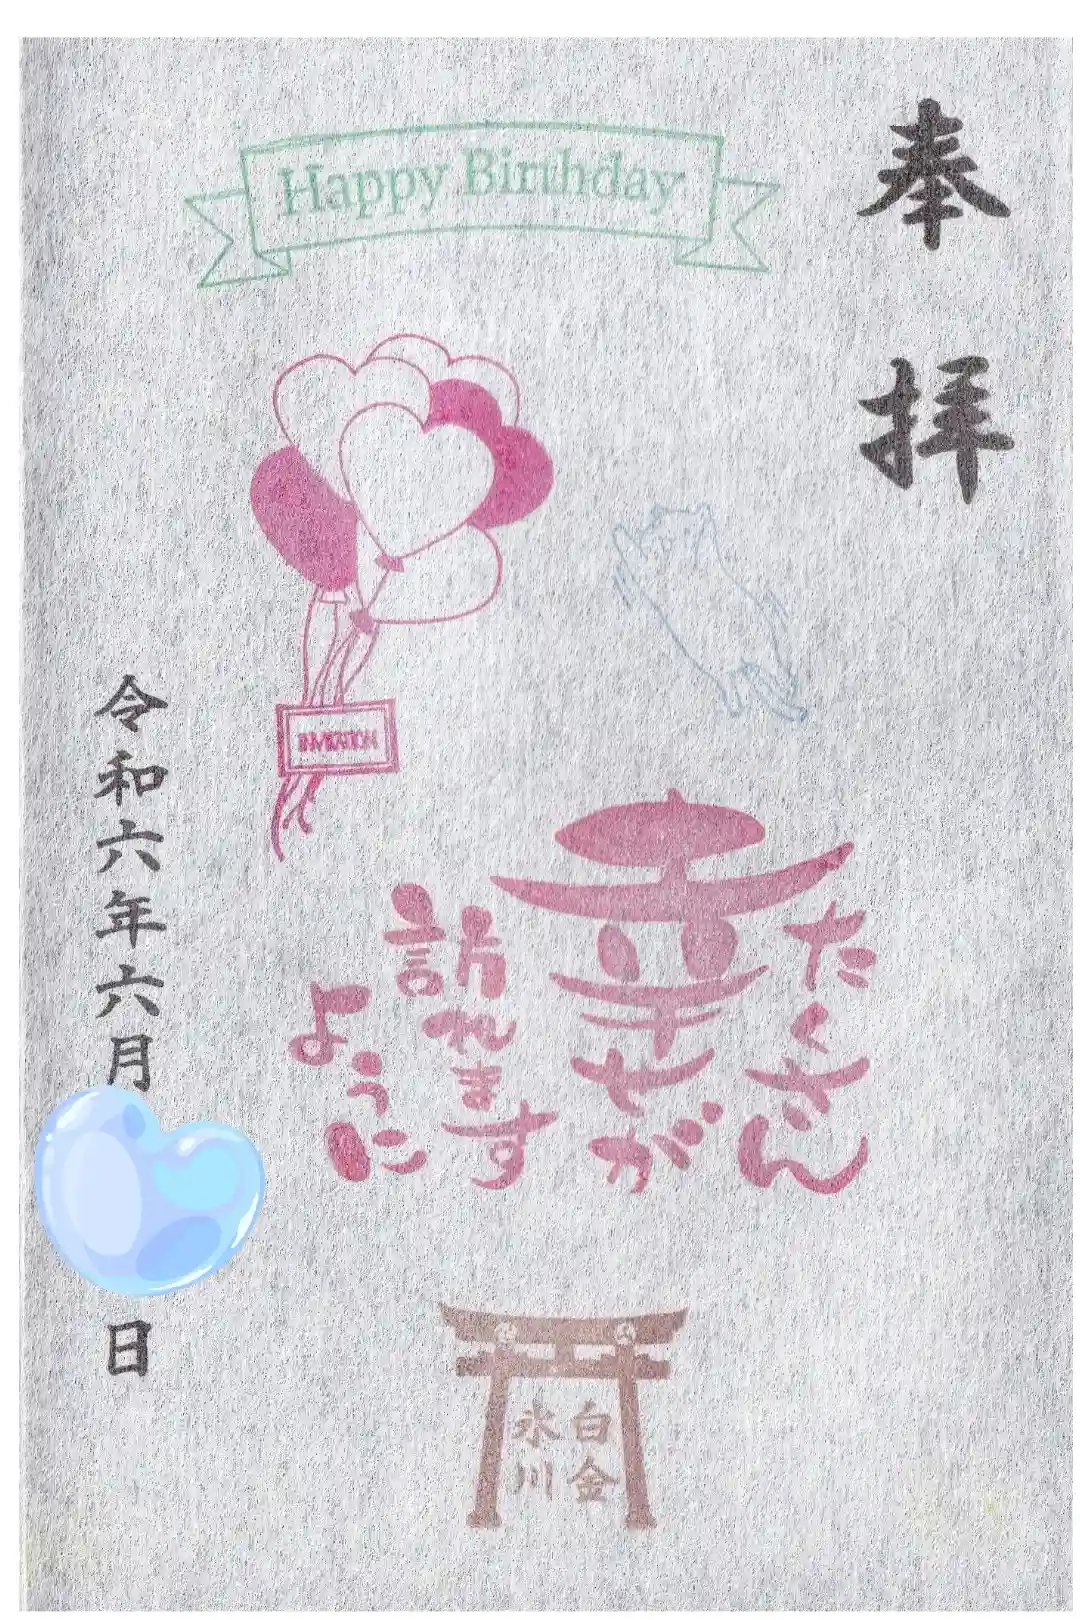 奉拝
Happy Birthday
INVITATION
たくさん
幸せが
訪れます
ように
白金
氷川
令和六年六月
日